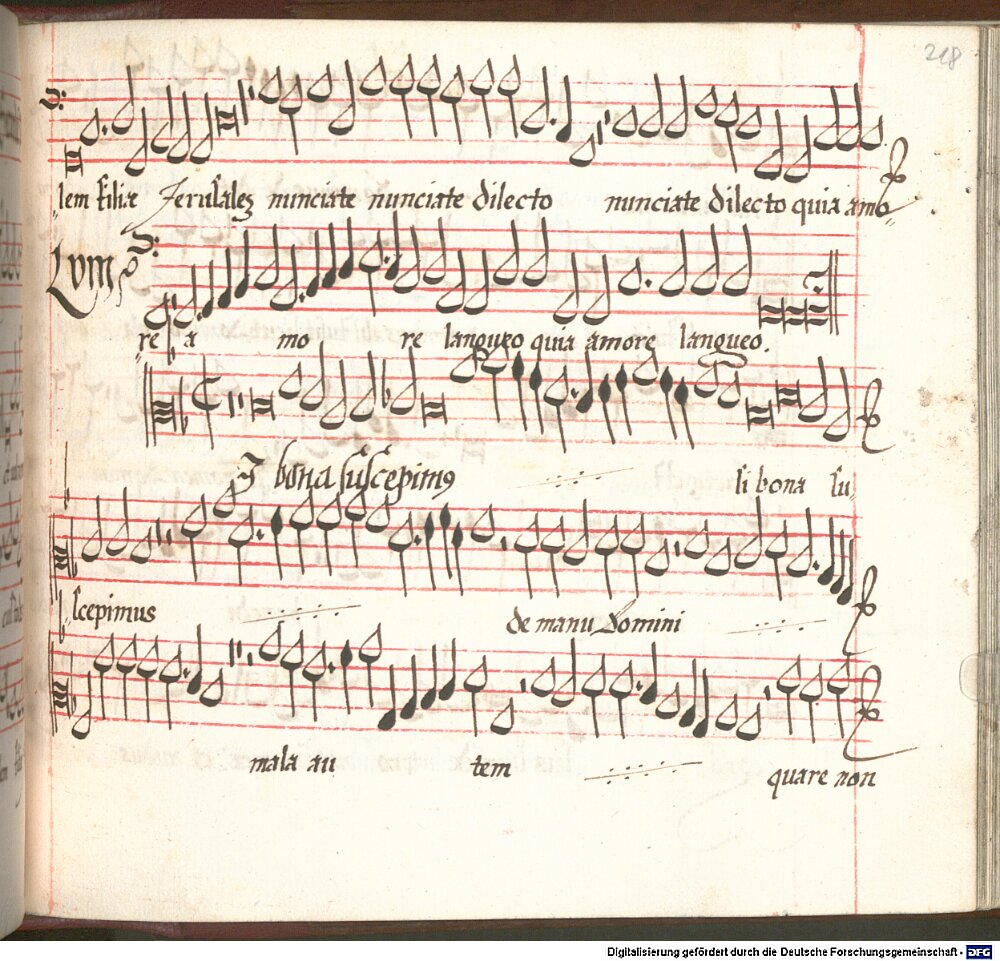 218
lem filiæ Jerusalez nunciate nunciate dilecto nunciate dilecto quia amo
re a mo re langueo quia amore langueo.
Si bona suscepimus si bona su
scepimus de manu Domini
mala au tem quare non
Digitalisierung gefördert durch die Deutsche Forschungsgemeinschaft - DFG